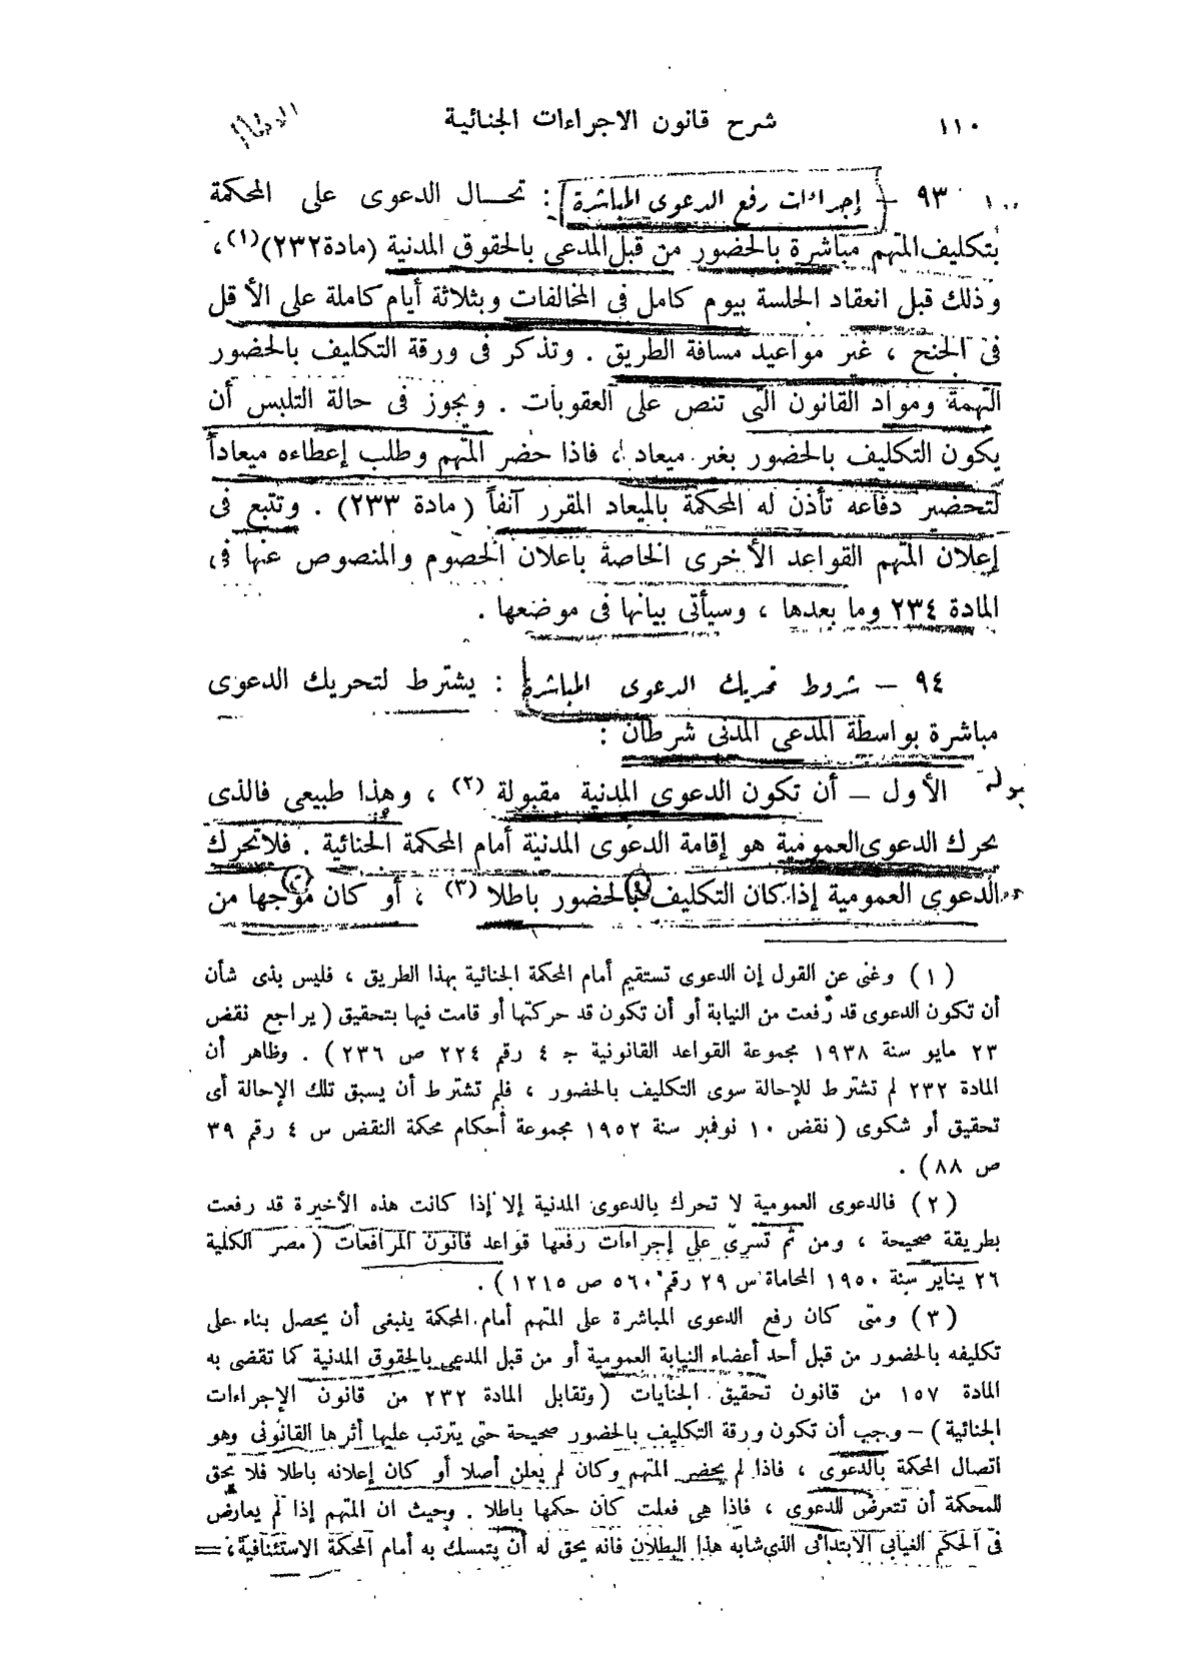 ١١٠ شرح قانون الاجراءات الجنائية
٩٣ – إجراءات رفع الدعوى المباشرة : تحال الدعوى على المحكمة
بتكليف المتهم مباشرة بالحضور من قبل المدعى بالحقوق المدنية (مادة ٢٣٢)(١)،
وذلك قبل انعقاد الجلسة بيوم كامل فى المخالفات وبثلاثة أيام كاملة على الأقل
فى الجنح ، غير مواعيد مسافة الطريق . وتذكر فى ورقة التكليف بالحضور
التهمة ومواد القانون التى تنص على العقوبات . ويجوز فى حالة التلبس أن
يكون التكليف بالحضور بغير ميعاد ، فاذا حضر المتهم وطلب إعطاءه ميعاداً
لتحضير دفاعه تأذن له المحكمة بالميعاد المقرر آنفاً ( مادة ٢٣٣) . وتتبع فى
إعلان المتهم القواعد الأخرى الخاصة باعلان الخصوم والمنصوص عنها فى
المادة ٢٣٤ وما بعدها ، وسيأتى بيانها فى موضعها .
٩٤ – شروط تحريك الدعوى المباشرة : يشترط لتحريك الدعوى
مباشرة بواسطة المدعى المدنى شرطان :
الأول – أن تكون الدعوى المدنية مقبولة (٢) ، وهذا طبيعى فالذى
يحرك الدعوى العمومية هو إقامة الدعوى المدنية أمام المحكمة الجنائية . فلا تحرك
الدعوى العمومية إذا كان التكليف بالحضور باطلا (٣) ، أو كان موجها من
(١) وغنى عن القول إن الدعوى تستقيم أمام المحكمة الجنائية بهذا الطريق ، فليس بذى شأن
أن تكون الدعوى قد رفعت من النيابة أو أن تكون قد حركتها أو قامت فيها بتحقيق ( يراجع نقض
٢٣ مايو سنة ١٩٣٨ مجموعة القواعد القانونية ج ٤ رقم ٢٢٤ ص ٢٣٦ ) . وظاهر أن
المادة ٢٣٢ لم تشترط للإحالة سوى التكليف بالحضور ، فلم تشترط أن يسبق تلك الإحالة أى
تحقيق أو شكوى ( نقض ١٠ نوفمبر سنة ١٩٥٢ مجموعة أحكام محكمة النقض س ٤ رقم ٣٩
ص ٨٨) .
(٢) فالدعوى العمومية لا تحرك بالدعوى المدنية إلا إذا كانت هذه الأخيرة قد رفعت
بطريقة صحيحة ، ومن ثم تسرى على إجراءات رفعها قواعد قانون المرافعات ( مصر الكلية
٢٦ يناير سنة ١٩٥٠ المحاماة س ٢٩ رقم ٥٦٠ ص ١٢١٥ ) .
(٣) ومتى كان رفع الدعوى المباشرة على المتهم أمام المحكمة ينبغى أن يحصل بناء على
تكليفه بالحضور من قبل أحد أعضاء النيابة العمومية أو من قبل المدعى بالحقوق المدنية كما تقضى به
المادة ١٥٧ من قانون تحقيق الجنايات ( وتقابل المادة ٢٣٢ من قانون الإجراءات
الجنائية ) – وجب أن تكون ورقة التكليف بالحضور صحيحة حتى يترتب عليها أثرها القانونى وهو
اتصال المحكمة بالدعوى ، فاذا لم يحضر المتهم وكان لم يعلن أصلا أو كان إعلانه باطلا فلا يحق
للمحكمة أن تتعرض للدعوى ، فاذا هى فعلت كان حكمها باطلا . وحيث ان المتهم إذا لم يعارض
فى الحكم الغيابى الابتدائى الذى شابه هذا البطلان فانه يحق له أن يتمسك به أمام المحكمة الاستئنافية، =